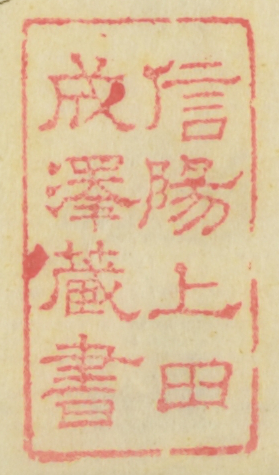 信陽上田
成澤蔵書